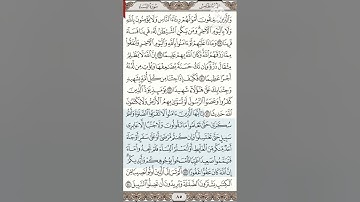 سُورَةُ النِّسَاء
وَالَّذِينَ يُنفِقُونَ أَمْوَالَهُمْ رِئَاءَ النَّاسِ وَلَا يُؤْمِنُونَ بِاللَّهِ
وَلَا بِالْيَوْمِ الْآخِرِ وَمَن يَكُنِ الشَّيْطَانُ لَهُ قَرِينًا فَسَاءَ
قَرِينًا ٣٨ وَمَاذَا عَلَيْهِمْ لَوْ آمَنُوا بِاللَّهِ وَالْيَوْمِ الْآخِرِ وَأَنفَقُوا
مِمَّا رَزَقَهُمُ اللَّهُ وَكَانَ اللَّهُ بِهِمْ عَلِيمًا ٣٩ إِنَّ اللَّهَ لَا يَظْلِمُ
مِثْقَالَ ذَرَّةٍ وَإِن تَكُ حَسَنَةً يُضَاعِفْهَا وَيُؤْتِ مِن لَّدُنْهُ
أَجْرًا عَظِيمًا ٤٠ فَكَيْفَ إِذَا جِئْنَا مِن كُلِّ أُمَّةٍ بِشَهِيدٍ
وَجِئْنَا بِكَ عَلَىٰ هَٰؤُلَاءِ شَهِيدًا ٤١ يَوْمَئِذٍ يَوَدُّ الَّذِينَ
كَفَرُوا وَعَصَوُا الرَّسُولَ لَوْ تُسَوَّىٰ بِهِمُ الْأَرْضُ وَلَا يَكْتُمُونَ
اللَّهَ حَدِيثًا ٤٢ يَا أَيُّهَا الَّذِينَ آمَنُوا لَا تَقْرَبُوا الصَّلَاةَ وَأَنتُمْ
سُكَارَىٰ حَتَّىٰ تَعْلَمُوا مَا تَقُولُونَ وَلَا جُنُبًا إِلَّا عَابِرِي
سَبِيلٍ حَتَّىٰ تَغْتَسِلُوا وَإِن كُنتُم مَّرْضَىٰ أَوْ عَلَىٰ سَفَرٍ أَوْ جَاءَ
أَحَدٌ مِّنكُم مِّنَ الْغَائِطِ أَوْ لَامَسْتُمُ النِّسَاءَ فَلَمْ تَجِدُوا مَاءً
فَتَيَمَّمُوا صَعِيدًا طَيِّبًا فَامْسَحُوا بِوُجُوهِكُمْ وَأَيْدِيكُمْ
إِنَّ اللَّهَ كَانَ عَفُوًّا غَفُورًا ٤٣ أَلَمْ تَرَ إِلَى الَّذِينَ أُوتُوا نَصِيبًا مِّنَ
الْكِتَابِ يَشْتَرُونَ الضَّلَالَةَ وَيُرِيدُونَ أَن تَضِلُّوا السَّبِيلَ ٤٤
٨٥